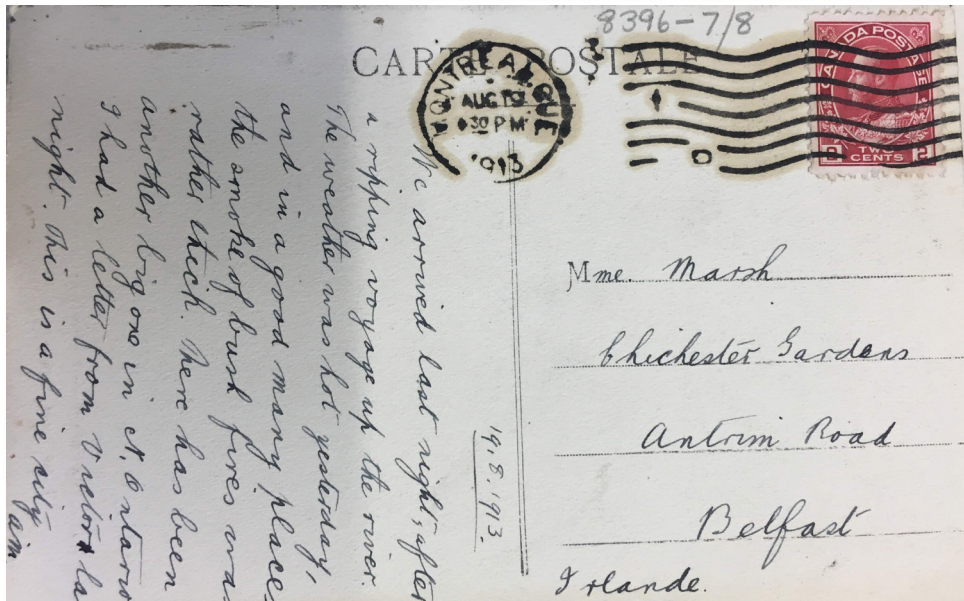 8396-7/8
CARTE POSTALE
MONTREAL, QUE
AUG 19
30 PM
1913
CANADA POSTAGE
2 TWO CENTS 2
We arrived last night, after
a ripping voyage up the river.
The weather was hot yesterday,
and in a good many places
the smoke of bush fires was
rather thick. There has been
another big one in N. Ontario
I had a letter from Victor la
night. This is a fine city
19.8.1913.
Mme. Marsh
Chichester Gardens
Antrim Road
Belfast
Irlande.